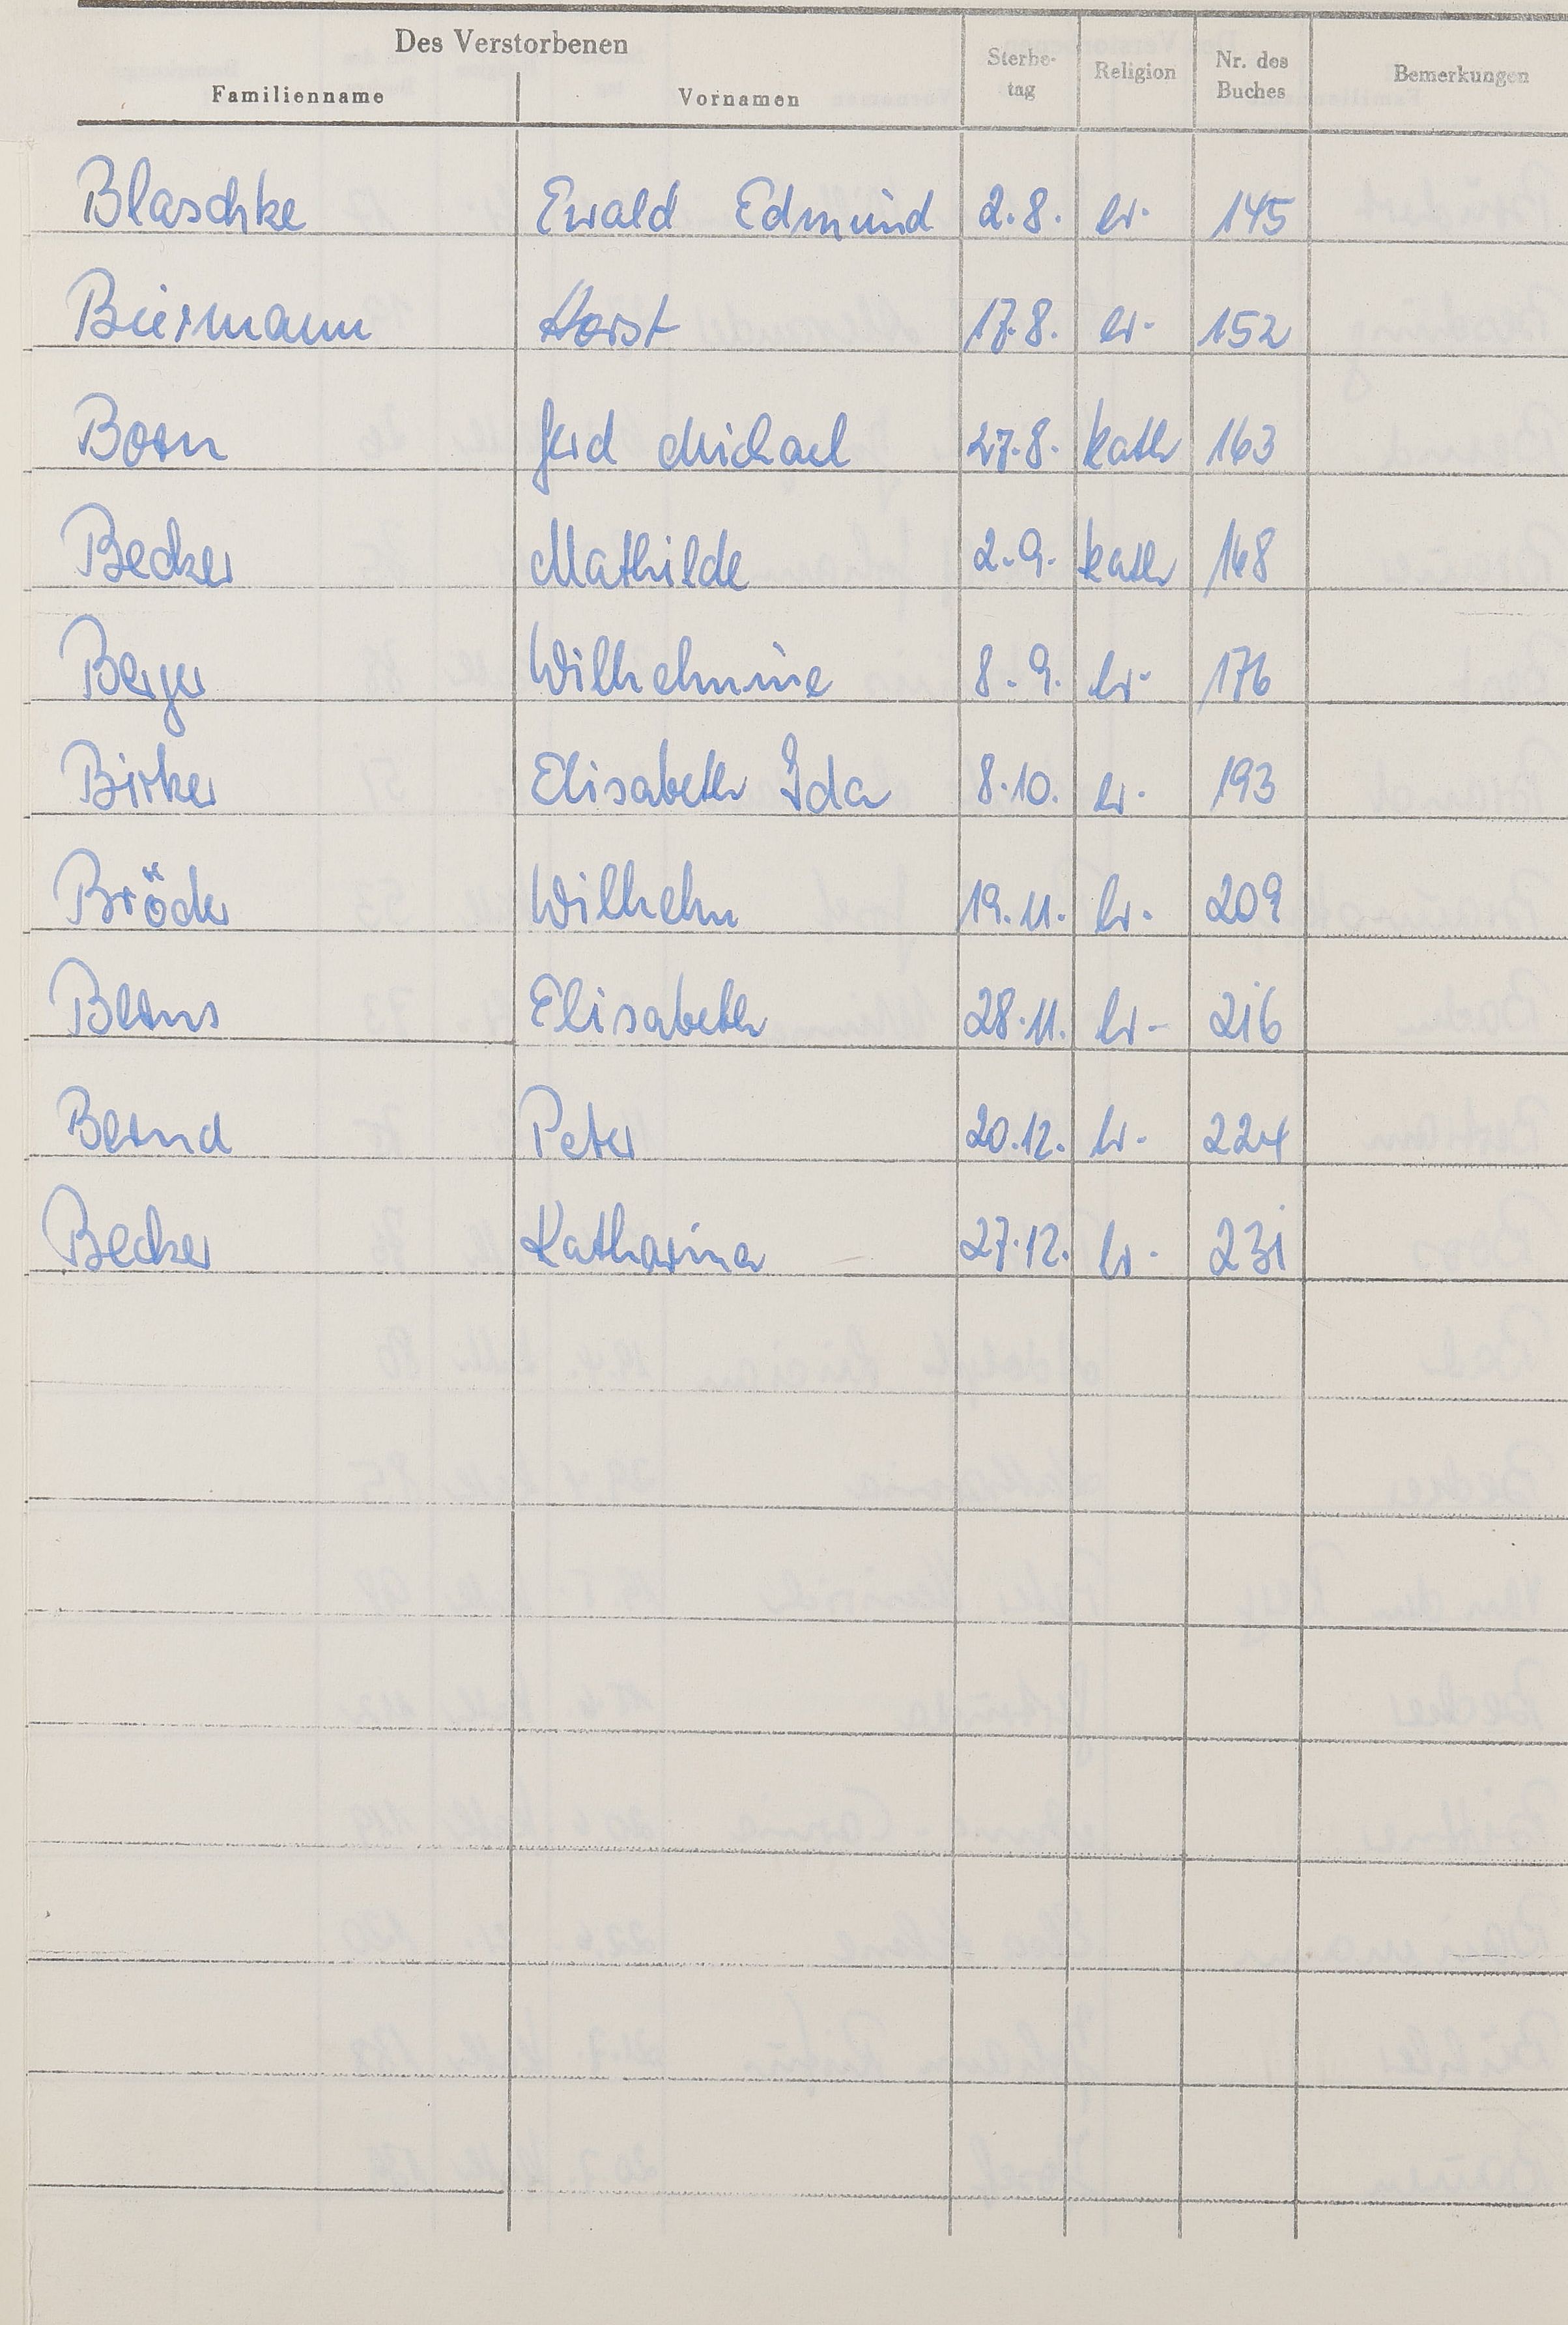 Des Verstorbenen
Familienname Vornamen Sterbe-tag Religion Nr. des Buches Bemerkungen
Blaschke Ewald Edmund 2.8. ev. 145
Biermann Horst 17.8. ev. 152
Born Gerd Michael 27.8. kath 163
Becker Mathilde 2.9. kath 168
Berger Wilhelmine 8.9. ev. 176
Birker Elisabeth Ida 8.10. ev. 193
Bröder Wilhelm 19.11. ev. 209
Berns Elisabeth 28.11. ev. 216
Bernd Peter 20.12. ev. 224
Becker Katharina 27.12. ev. 231